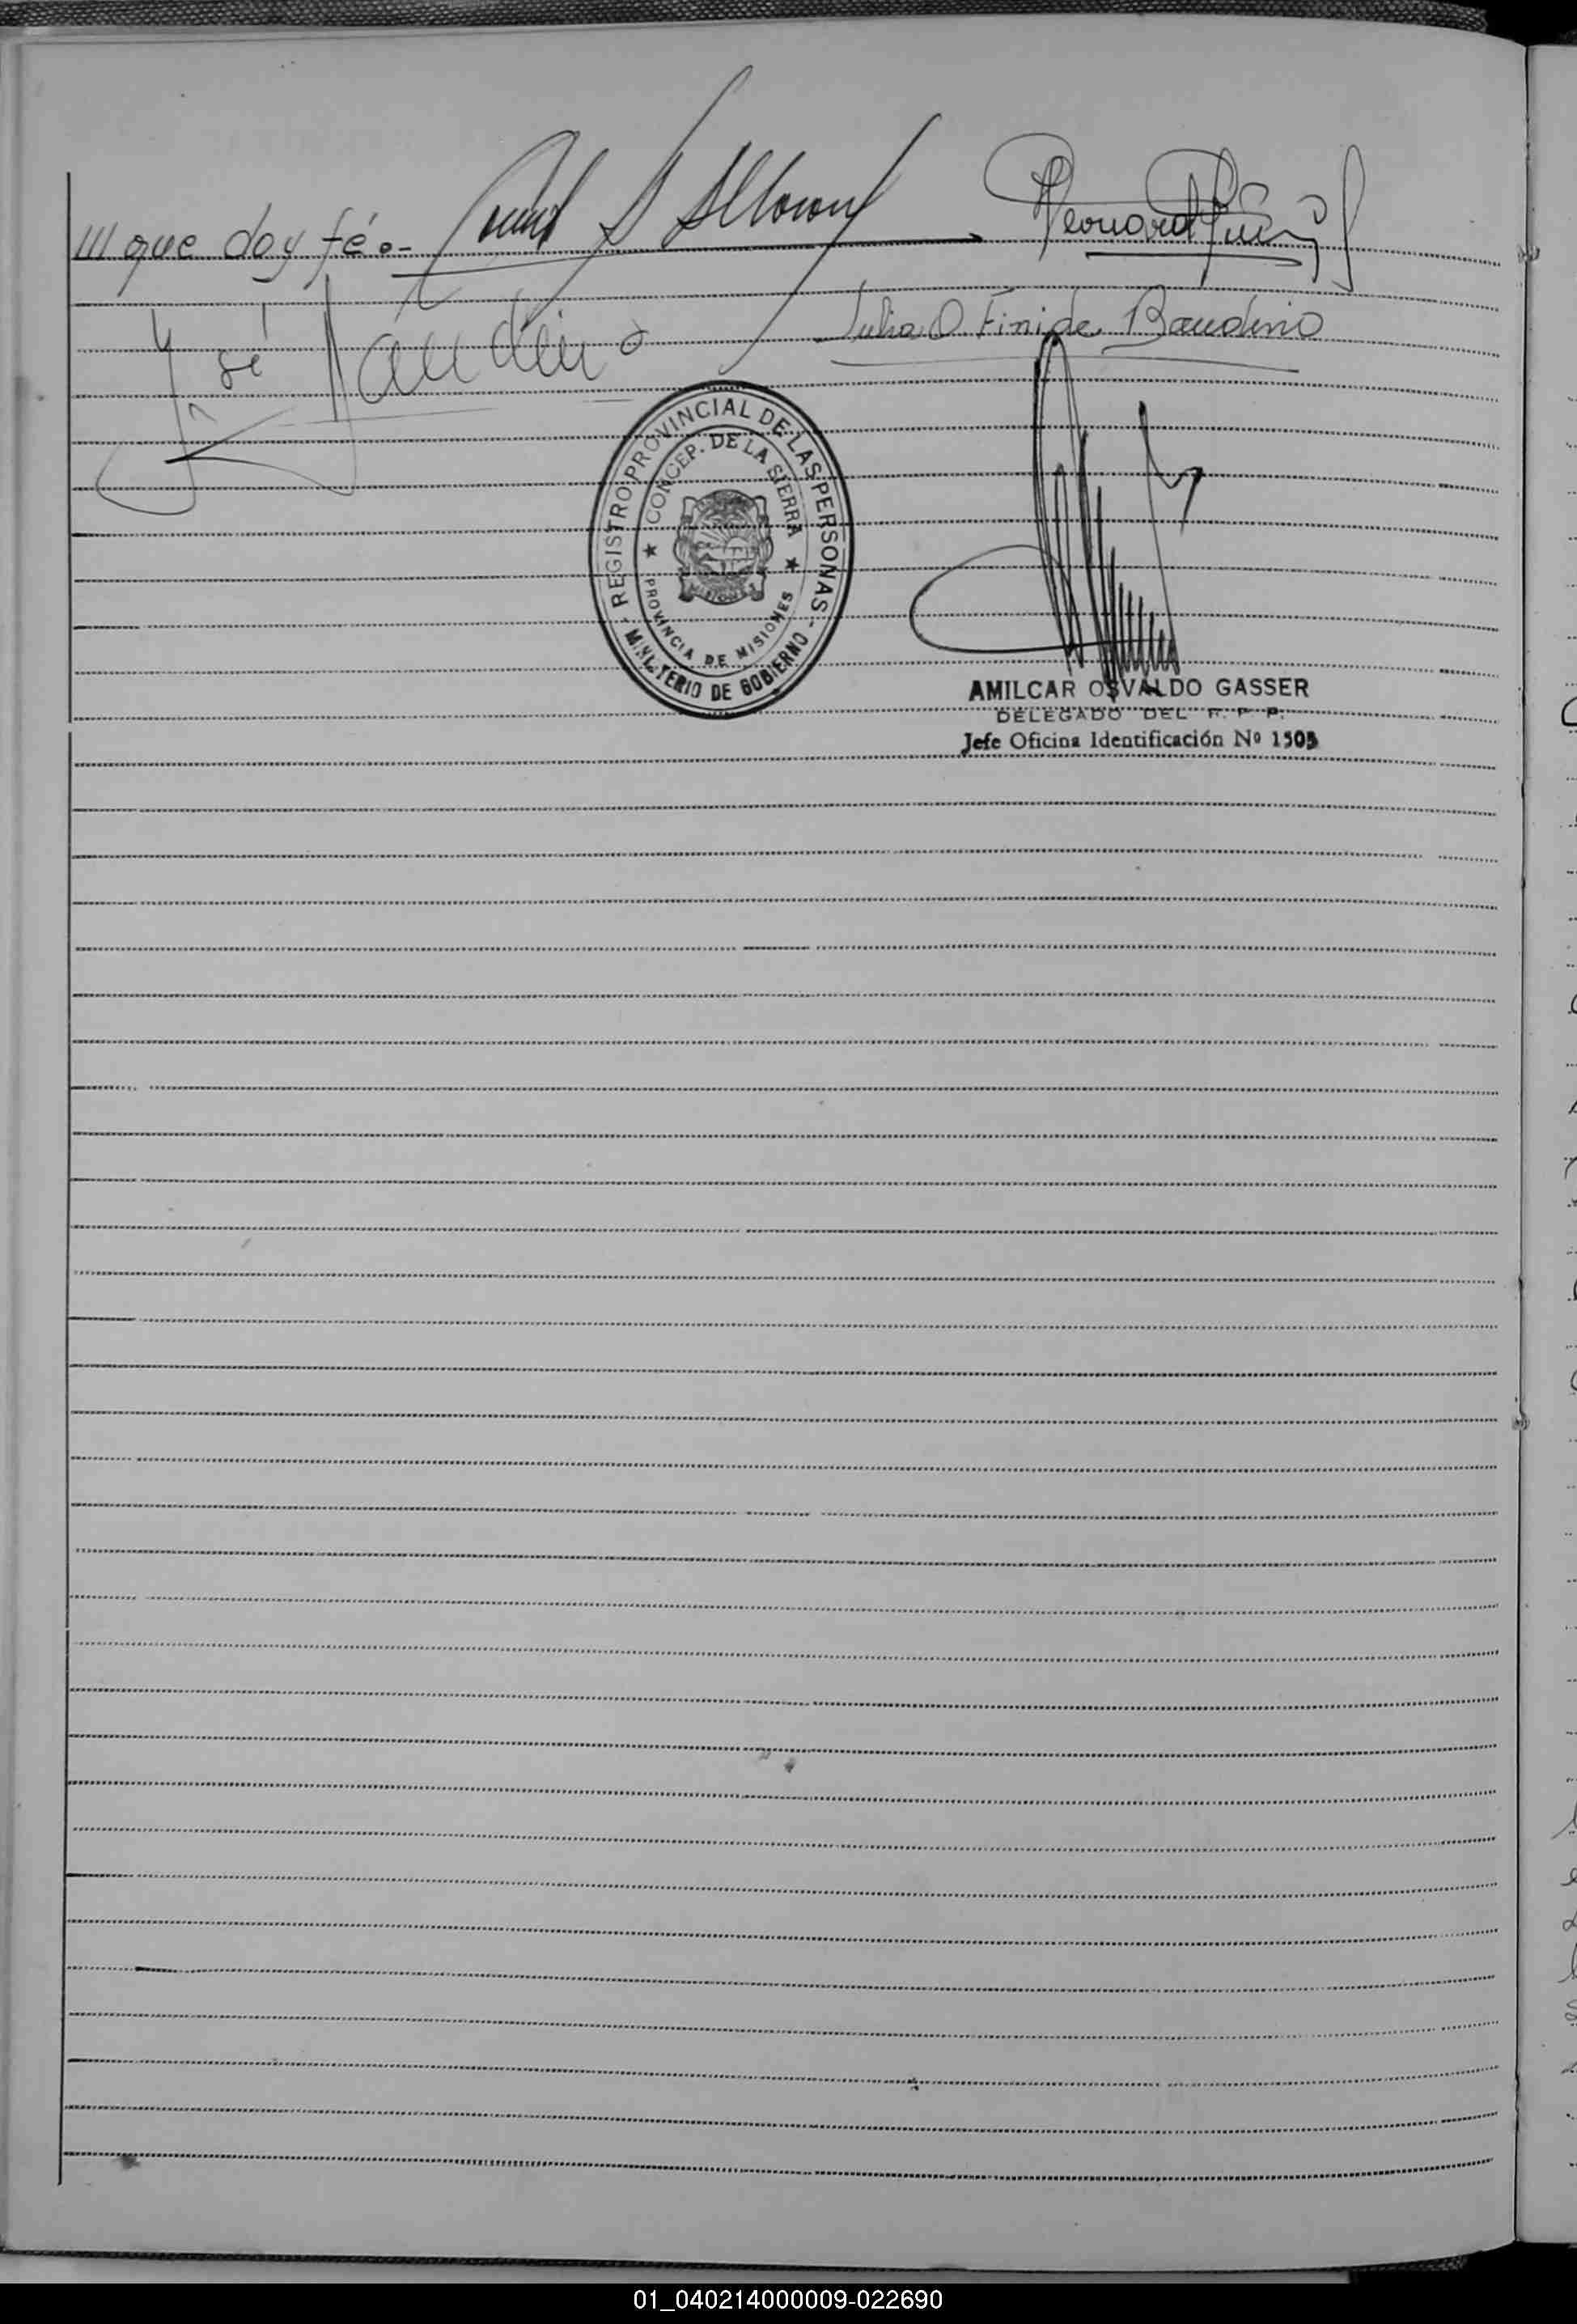 /// que doy fé.-
Julia O Fini de Baudino
José Baudino
REGISTRO PROVINCIAL DE LAS PERSONAS
CONCEP. DE LA SIERRA
PROVINCIA DE MISIONES
- MINISTERIO DE GOBIERNO -
AMILCAR OSVALDO GASSER
DELEGADO DEL R. P. P.
Jefe Oficina Identificación Nº 1505
01_040214000009-022690